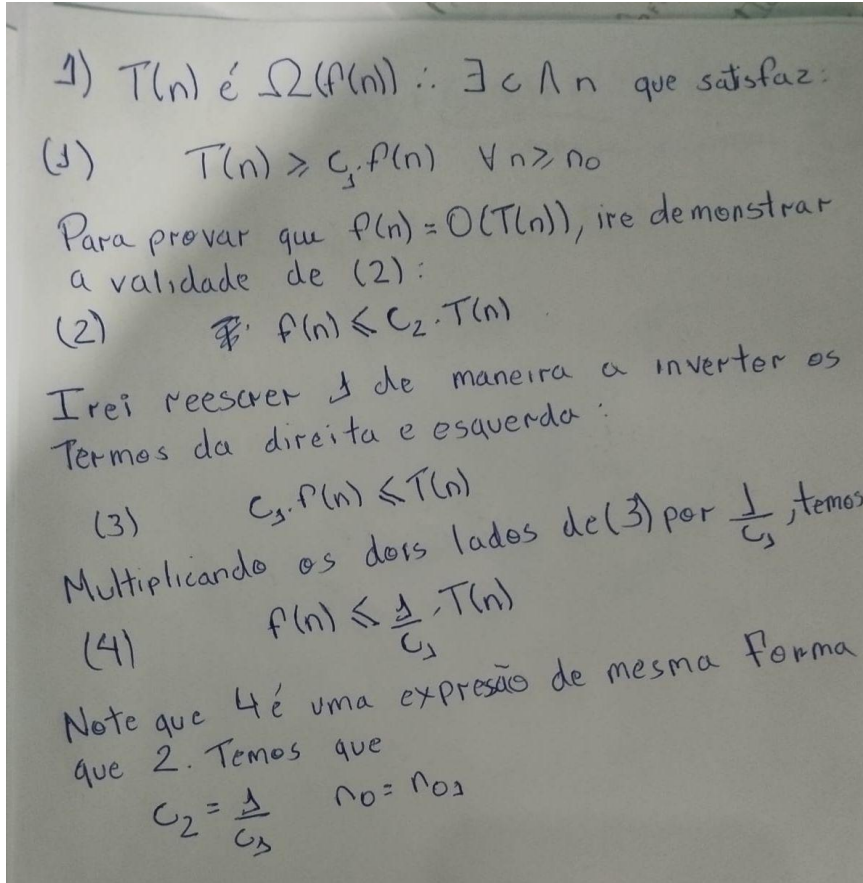 1) T(n) é Ω(f(n)) ∴ ∃ c ∧ n que satisfaz:
(1) T(n) ⩾ c₁.f(n) ∀ n ⩾ n₀
Para provar que f(n) = O(T(n)), ire demonstrar
a validade de (2):
(2) f(n) ⩽ C₂.T(n)
Irei reescrer 1 de maneira a inverter os
Termos da direita e esquerda:
(3) C₁.f(n) ⩽ T(n)
Multiplicando os dois lados de (3) por 1/C₁, temos
(4) f(n) ⩽ 1/C₁ . T(n)
Note que 4 é uma expresão de mesma Forma
que 2. Temos que
C₂ = 1/C₁ n₀ = n₀₁